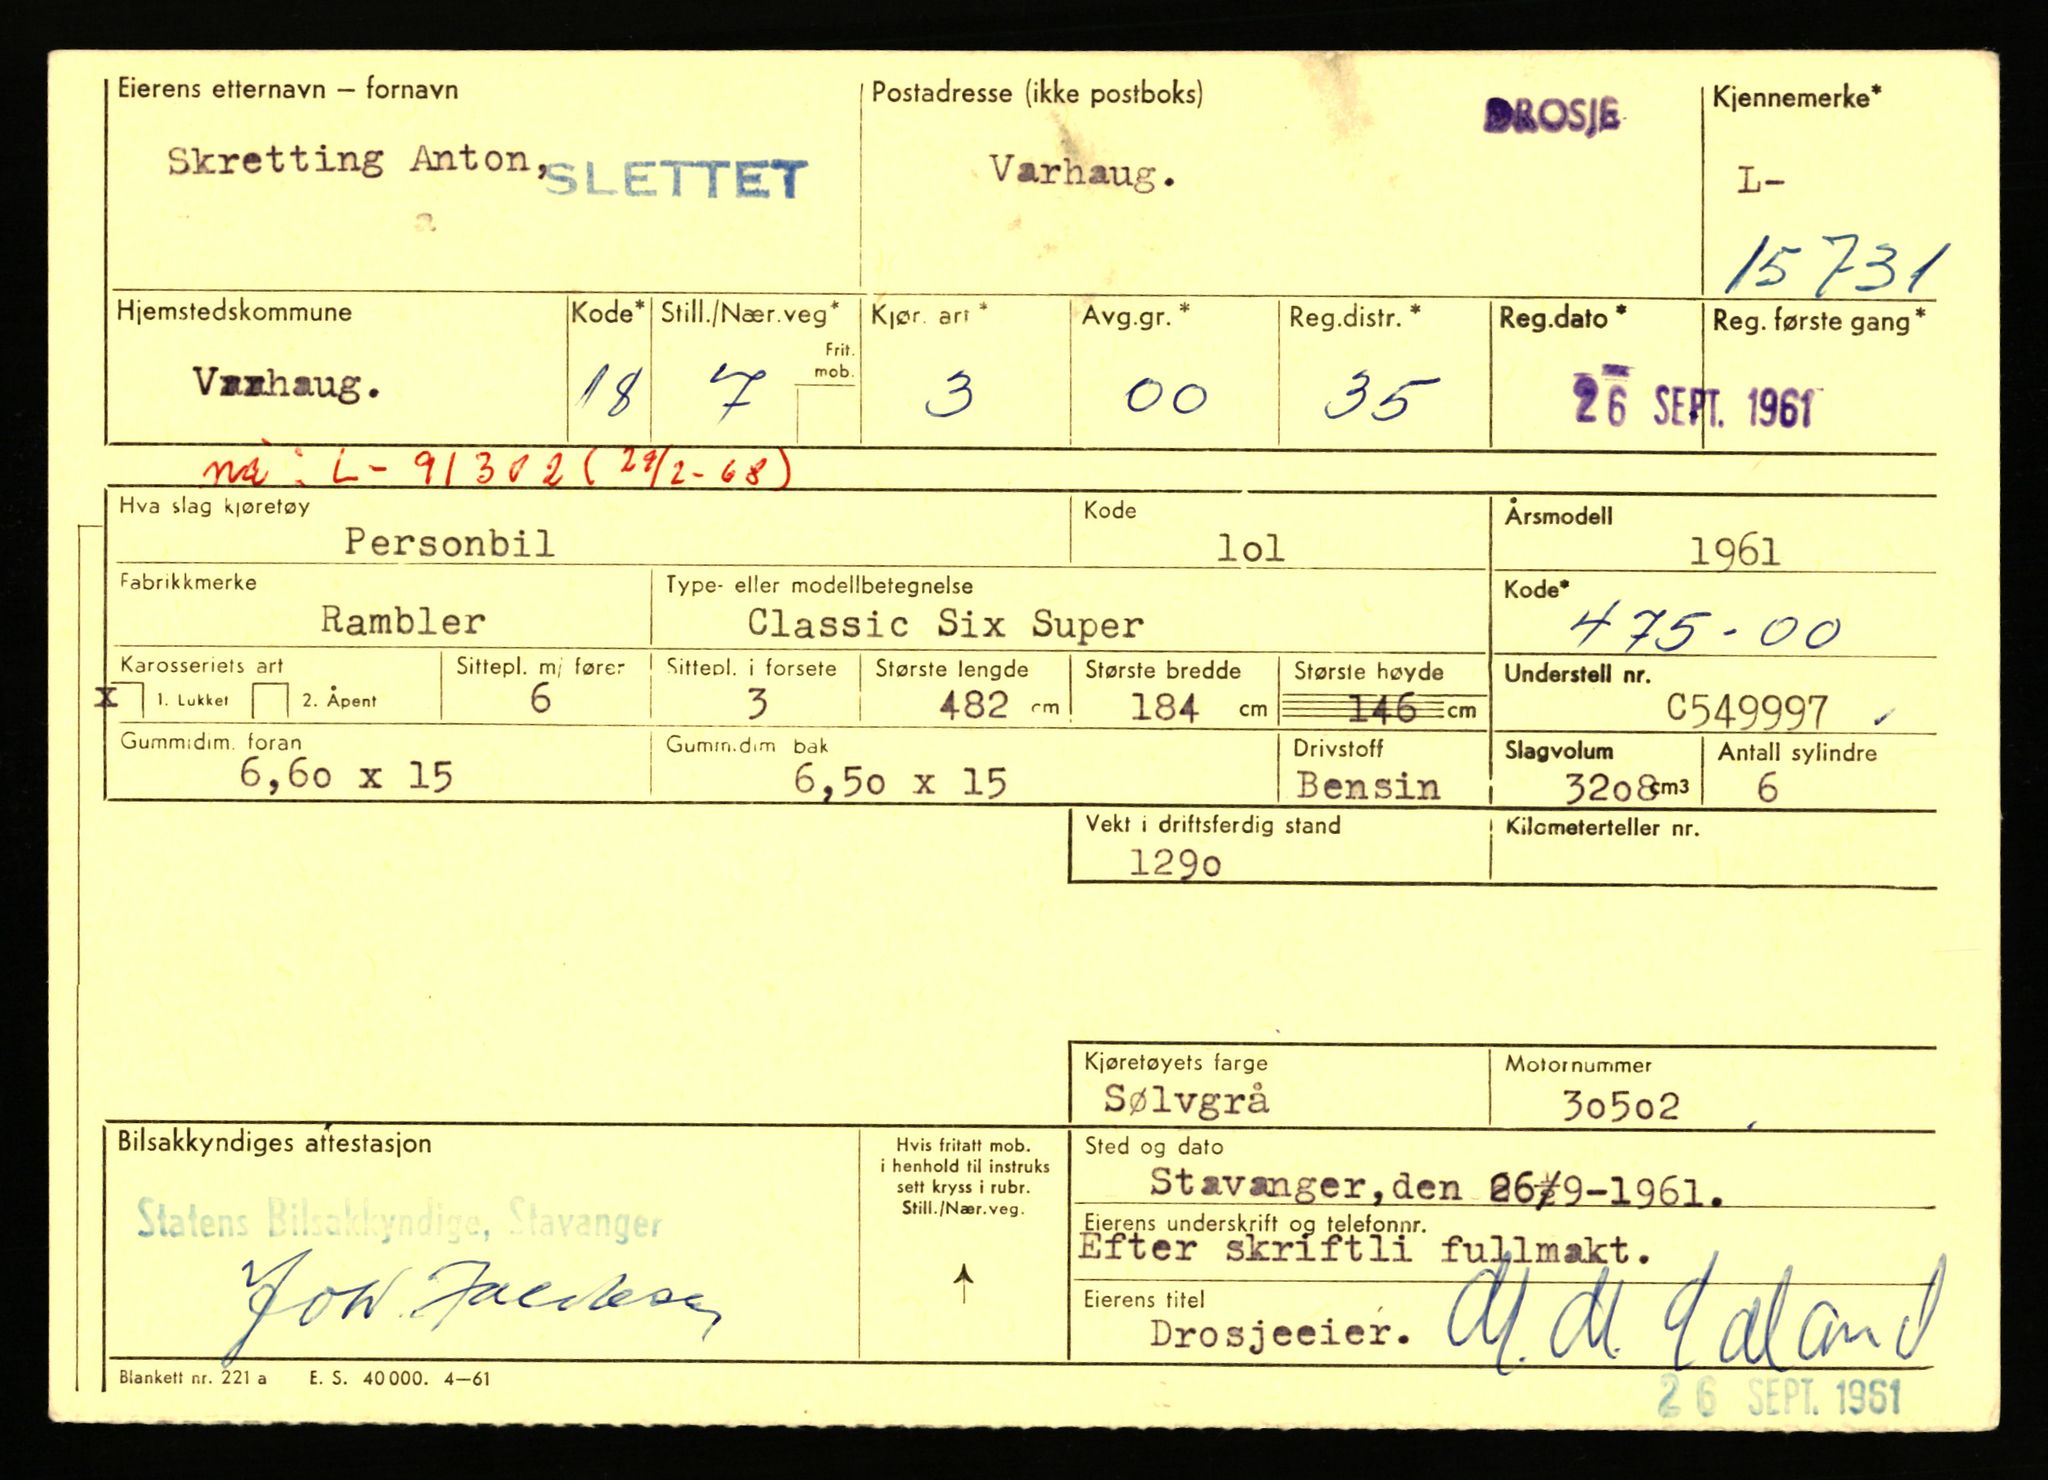 Eierens etternavn – fornavn
Skretting Anton,
SLETTET
Postadresse (ikke postboks)
Varhaug.
DROSJE
Kjennemerke*
L-
15731
Hjemstedskommune
Varhaug.
Kode*
18
Still./Nær.veg*
7
Frit.
mob.
Kjør. art*
3
Avg.gr.*
00
Reg.distr.*
35
Reg.dato*
Reg. første gang*
26 SEPT. 1961
nå: L-91302 (29/2-68)
Hva slag kjøretøy
Personbil
Kode
1o1
Årsmodell
1961
Fabrikkmerke
Rambler
Type- eller modellbetegnelse
Classic Six Super
Kode*
475-00
Karosseriets art
x 1. Lukket 2. Åpent
Sittepl. m/ fører
6
Sittepl. i forsete
3
Største lengde
482 cm
Største bredde
184 cm
Største høyde
146 cm
Understell nr.
C549997
Gummidim. foran
6,6o x 15
Gumm.dim bak
6,5o x 15
Drivstoff
Bensin
Slagvolum
32o8 cm3
Antall sylindre
6
Vekt i driftsferdig stand
129o
Kilometerteller nr.
Kjøretøyets farge
Sølvgrå
Motornummer
3o5o2
Bilsakkyndiges attestasjon
Statens Bilsakkyndige, Stavanger
Hvis fritatt mob.
i henhold til instruks
sett kryss i rubr.
Still./Nær.veg.
Sted og dato
Stavanger,den 26/9-1961.
Eierens underskrift og telefonnr.
Efter skriftli fullmakt.
Eierens titel
Drosjeeier.
M. M. Edland
Blankett nr. 221 a E. S. 40 000. 4–61
26 SEPT. 1961